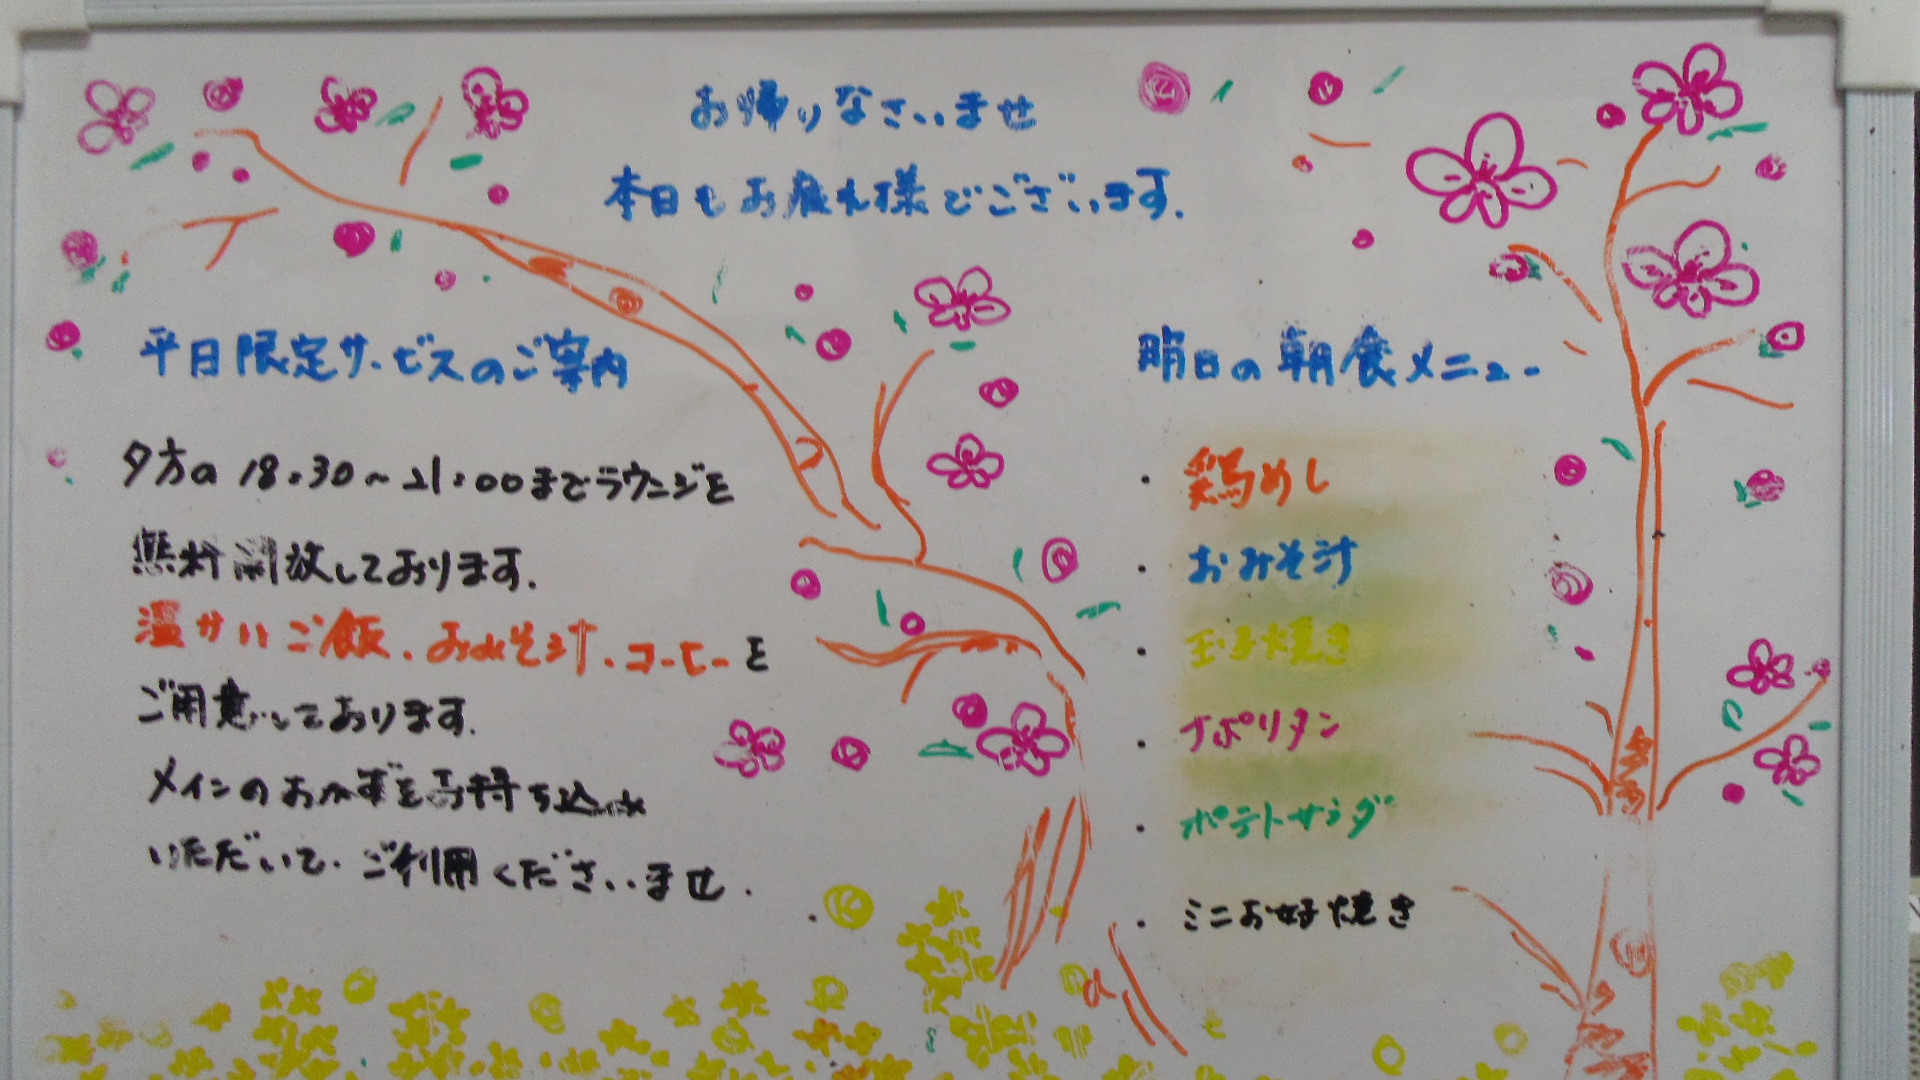 お帰りなさいませ
本日もお疲れ様でございます.
平日限定サービスのご案内
夕方の18:30～21:00までラウンジを
無料開放しております.
温かいご飯.おみそ汁.コーヒーを
ご用意しております.
メインのおかずをお持ち込み
いただいて.ご利用くださいませ.
明日の朝食メニュー
・鶏めし
・おみそ汁
・玉子焼き
・ナポリタン
・ポテトサラダ
・ミニお好焼き